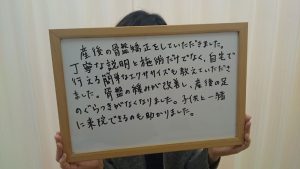 産後の骨盤矯正をしていただきました。
丁寧な説明と施術だけでなく、自宅で
行える簡単なエクササイズも教えていただき
ました。骨盤の痛みが改善し、産後の足
のぐらつきがなくなりました。子供と一緒
に来院できるのも助かりました。